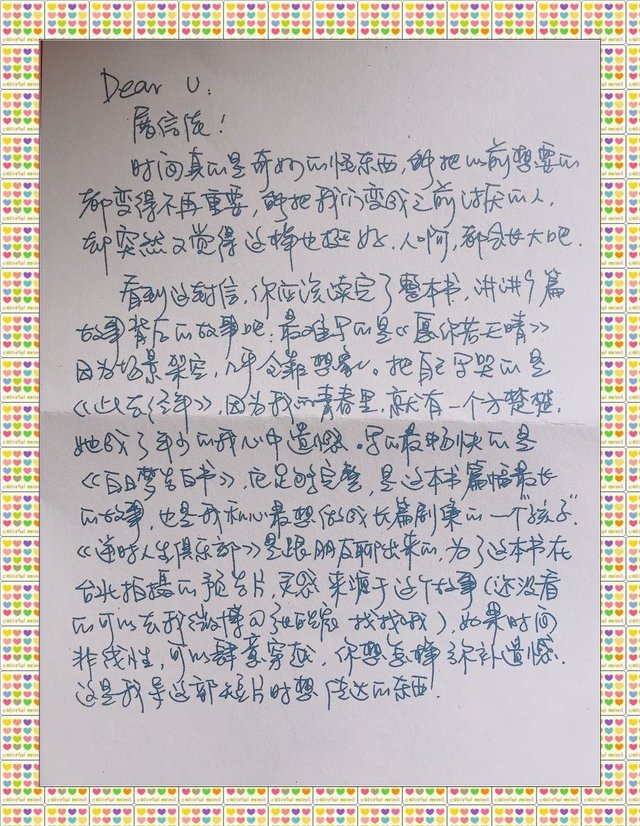 Dear U:
展信佳！
时间真的是奇妙的怪东西，能把以前想要的
都变得不再重要，能把我们变成之前讨厌的人，
却突然又觉得这样也挺好，人啊，都会长大吧．
看到这封信，你应该读完了整本书，讲讲9篇
故事背后的故事吧：最难写的是《愿你若天晴》
因为场景架空，几乎全靠想象。把自己写哭的是
《此去经年》，因为我的青春里，就有一个方楚楚，
她成了年少的我心中遗憾．写的最畅快的是
《白日梦告白书》，它足够完整，是这本书篇幅最长
的故事，也是我私心最想做成长篇剧集的一个"孩子"
《逆时人生俱乐部》是跟朋友聊出来的，为了这本书在
台北拍摄的预告片，灵感来源于这个故事（还没看
的可以去我微博找找哦），如果时间
非线性，可以肆意穿越，你想怎样弥补遗憾．
这是我导这部短片时想传达的东西．
colorful mind